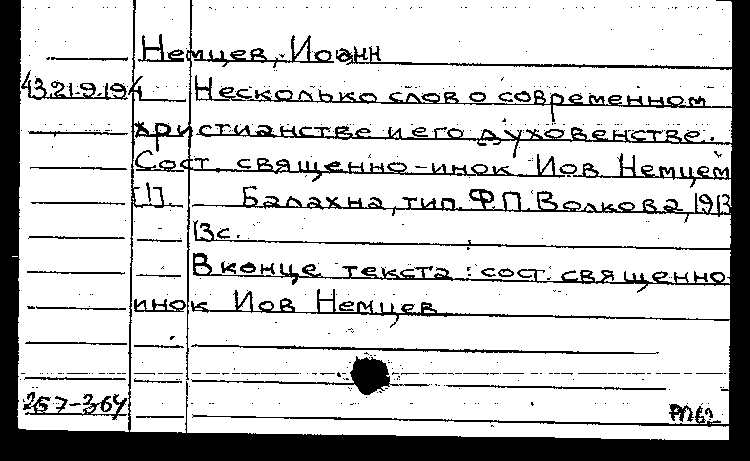 Немцев, Иоанн
43.21.9.194 Несколько слов о современном
христианстве и его духовенстве.
Сост. священно-инок Иов Немцем
[1]. Балахна, тип. Ф.П. Волкова, 1913
13с.
В конце текста: сост. священно-
инок Иов Немцев
257-364 РП62